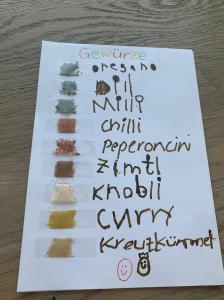 Gewürze
oregano
Dill
Milli
chilli
Peperoncini
Zimtl
Knobli
CURRY
Kreutzkümmel